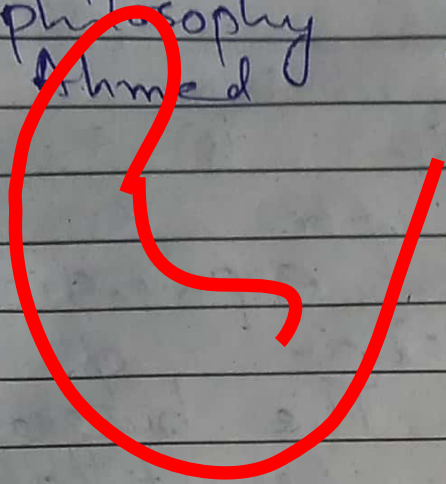 philosophy
Ahmed